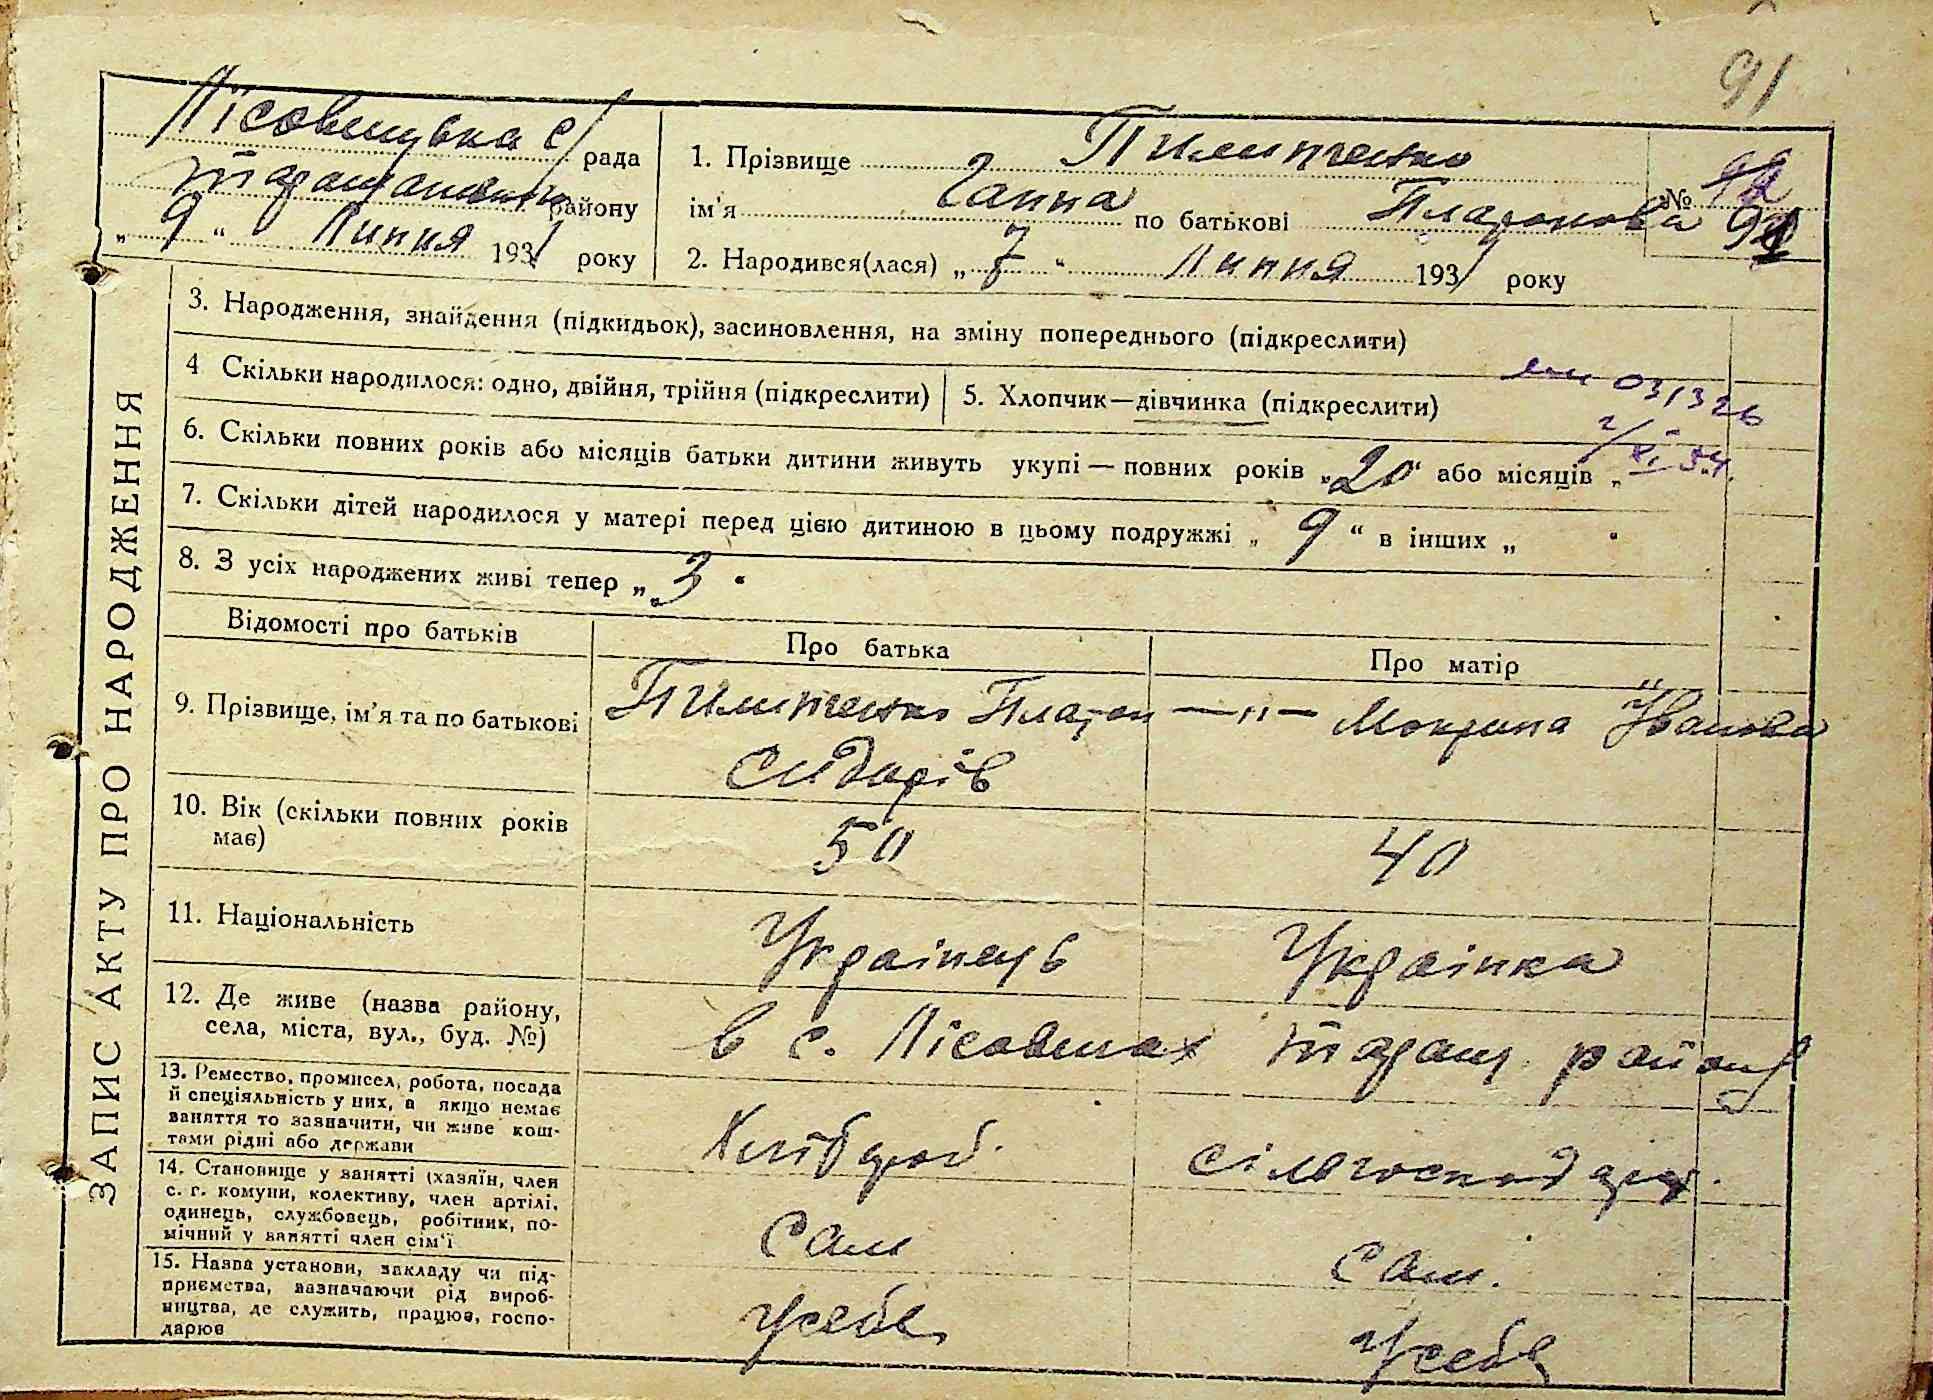 91
Лісовицька с/рада
Таращанськ району
„ 9 “ Липня 1931 року
1. Прізвище Пилипченко
ім'я Ганна по батькові Платонова
№ 91
2. Народився(лася) „ 7 “ Липня 1931 року
ЗАПИС АКТУ ПРО НАРОДЖЕННЯ
3. Народження, знайдення (підкидьок), засиновлення, на зміну попереднього (підкреслити)
4 Скільки народилося: одно, двійня, трійня (підкреслити)
5. Хлопчик—дівчинка (підкреслити)
031326
2/XI 54.
6. Скільки повних років або місяців батьки дитини живуть укупі — повних років „20“ або місяців „
7. Скільки дітей народилося у матері перед цією дитиною в цьому подружжі „ 9 “ в інших „ “
8. З усіх народжених живі тепер „ 3 “
Відомості про батьків
Про батька
Про матір
9. Прізвище, ім'я та по батькові
Пилипченко Платон
Сидорів
—„— Мокрина Іванова
10. Вік (скільки повних років
має)
50
40
11. Національність
Українець
Українка
12. Де живе (назва району,
села, міста, вул., буд. №)
в с. Лісовичах Таращ. району
13. Ремество, промисел, робота, посада
й спеціяльність у них, а якщо немає
заняття то зазначити, чи живе кош-
тами рідні або держави
Хлібороб.
сільгосподар.
14. Становище у занятті (хазяїн, член
с. г. комуни, колективу, член артілі,
одинець, службовець, робітник, по-
мічний у занятті член сім'ї
Сам
Сам.
15. Назва установи, закладу чи під-
приємства, зазначаючи рід вироб-
ництва, де служить, працює, госпо-
дарює
У себе
У себе